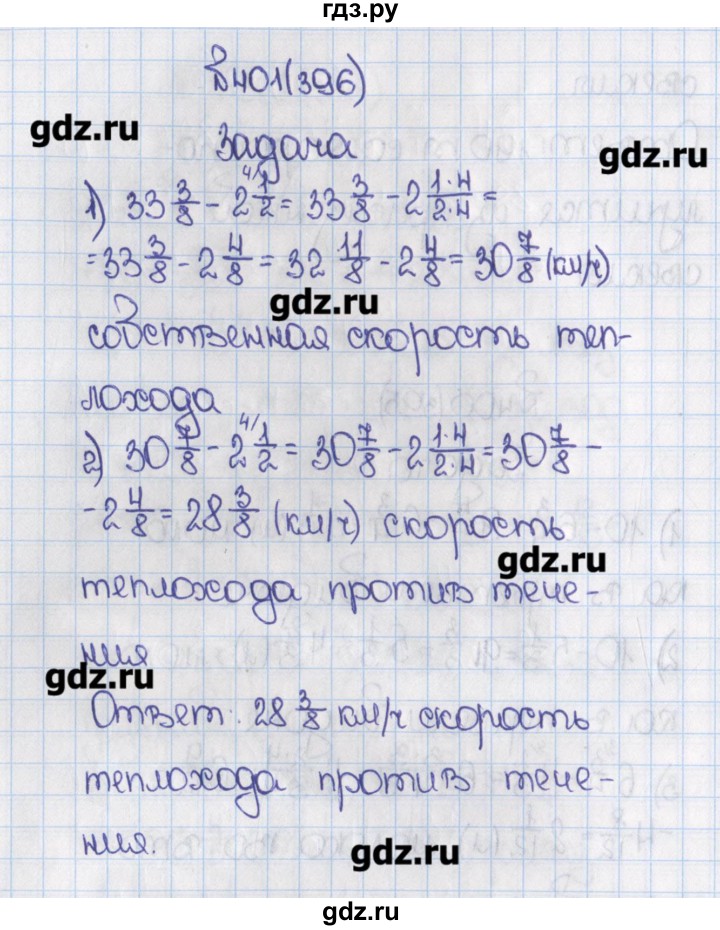 гдз.ру
№401(396)
gdz.ru
Задача
gdz.ru
1) 33 3/8 - 2 4/ 1/2 = 33 3/8 - 2 1·4/2·4 =
= 33 3/8 - 2 4/8 = 32 11/8 - 2 4/8 = 30 7/8 (км/ч)
gdz.ru
собственная скорость теп-
лохода
2) 30 7/8 - 2 4/ 1/2 = 30 7/8 - 2 1·4/2·4 = 30 7/8 -
- 2 4/8 = 28 3/8 (км/ч) скорость
gdz.ru
теплохода против тече-
ния
gdz.ru
Ответ: 28 3/8 км/ч скорость
теплохода против тече-
ния.
gdz.ru
gdz.ru